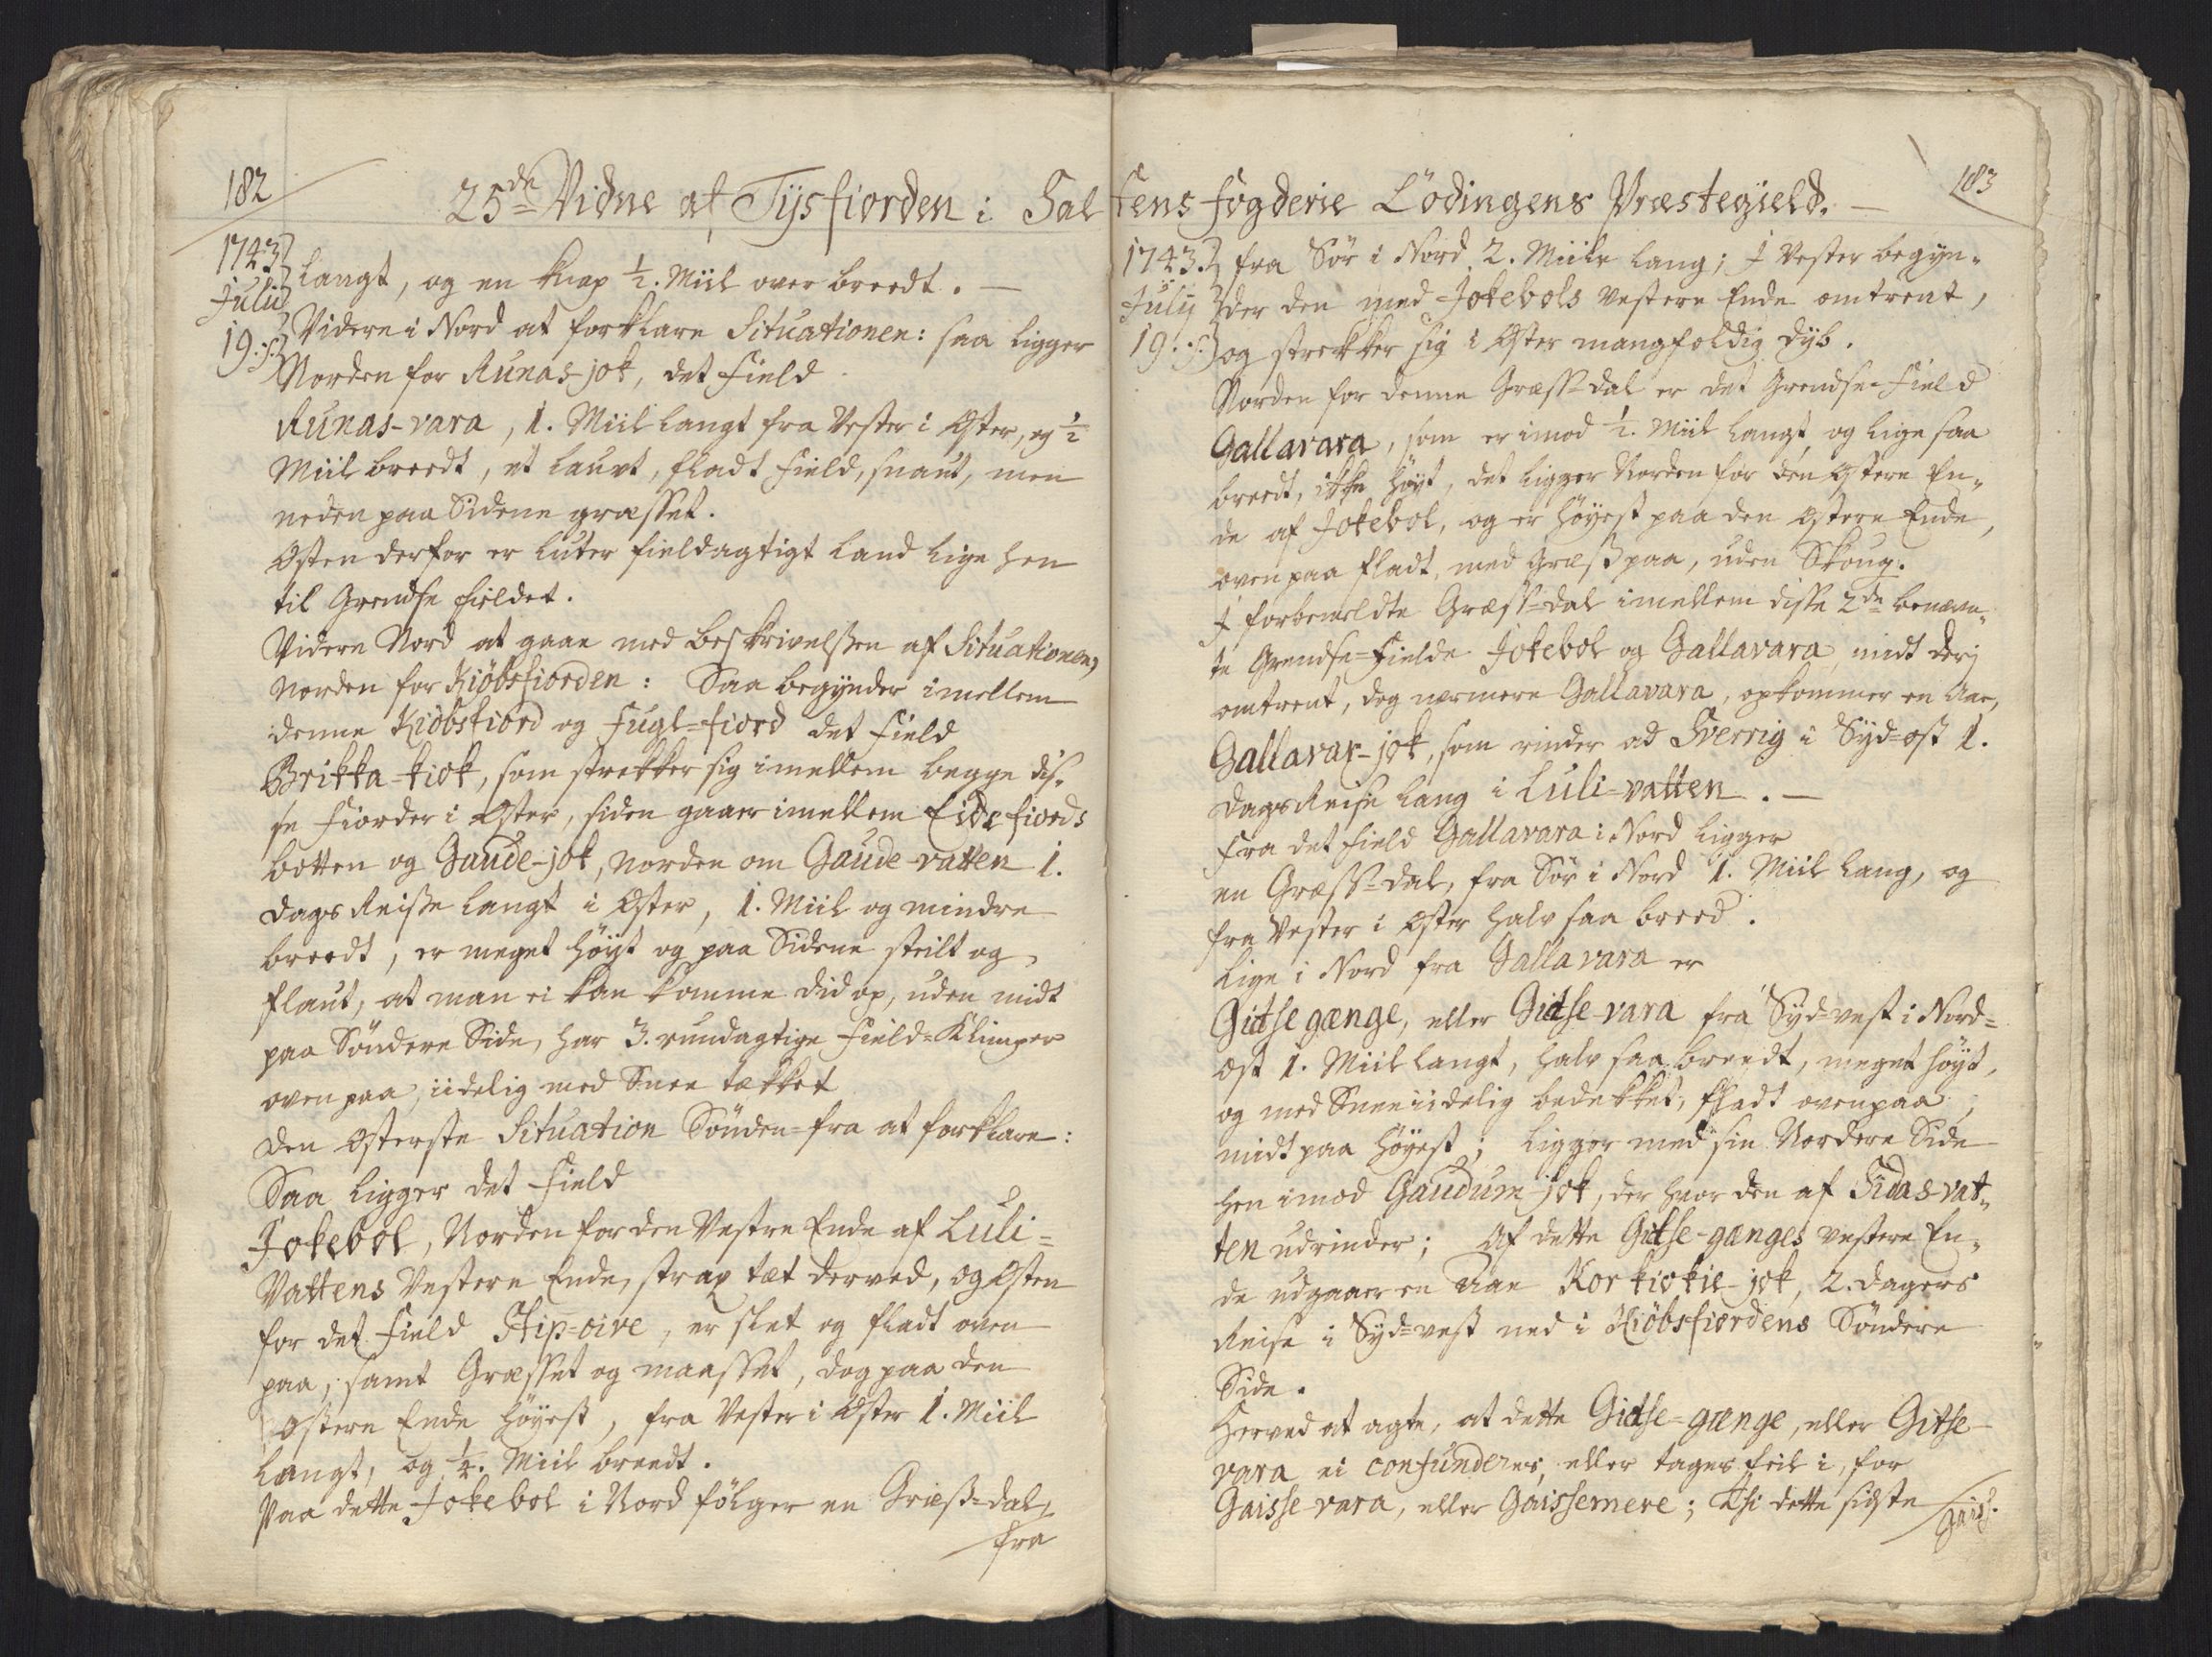 182
25de Vidne af Tÿsfiorden i Sal
1743.
Julii
19. :/:
langt, og en knap ½. Miil over breedt. —
Videre i Nord at forklare Situationen: saa ligger
Norden for Runas-jok, det Field
Runas-vara, 1. Miil langt fra Vester i Øster, og ½
Miil breedt, et lauvt, fladt Field, snaut, men
neden paa Siderne græsset.
Østen derfor er luter fieldagtigt Land lige hen
til Grendse Fieldet.
Videre Nord at gaae med beskrivelsen af Situationen,
Norden for Kiöbsfiorden: Saa begynder imellem
denne Kiöbsfiord og Fugl=fiord det Field
Brikka-kiok, som strekker sig imellem begge dis-
se Fiorder i Øster, siden gaaer imellem Eidefiords
botten og Gaude-jok, norden om Gaude-vatten 1.
dags Reise langt i Øster, 1. Miil og mindre
breedt, er meget höyt og paa Siderne steilt og
flaut, at man ei kan komme did op, uden midt
paa Söndere Side, har 3. rundagtige Field=Klimper
oven paa, iidelig med Snee tækket
Den Østerste Situation Sönden=fra at forklare:
Saa ligger det Field
Jokebol, Norden for den Vestre Ende af Luli=
Vattens Vestere Ende, strax tæt derved, og Østen
for det Field Stip=oive, er slet og fladt oven
paa, samt Græsset og maasset, dog paa den
Østere Ende höyest, fra Vester i Øster 1. Miil
langt, og ¼. Miil breedt.
Paa dette Jokebol i Nord fölger en Græss=dal,
fra
183
tens fogderie Lödingens Præstegield. —
1743.
Julÿ
19. :/:
fra Sör i Nord 2. Miile lang; I Vester begyn-
der den med Jokebols Vestere Ende omtrent,
og strekker sig i Øster mangfoldig dyb.
Norden for denne Græss=dal er det Grendse=Field
Gallavara, som er imod ½. Miil langt og lige saa
breedt, ikke höyt, det ligger Norden for den Østere En-
de af Jokebol, og er höyest paa den Østere Ende,
oven paa fladt, med Græss paa, uden Skoug.
I forbemeldte Græss=dal imellem disse 2de benævn-
te Grendse=Fielde Jokebol og Gallavara, midt deri
omtrent, dog nærmere Gallavara, opkommer en Aae,
Gallavar-jok, som rinder ad Sverrig i Syd=ost 1.
dags Reise lang i Luli=vatten. —
Fra det Field Gallavara i Nord ligger
en Græss=dal, fra Sör i Nord 1. Miil lang, og
fra Vester i Øster halv saa breed.
Lige i Nord fra Gallavara er
Gidtse gænge, eller Gidtse-vara fra Syd=vest i Nord=
ost 1. Miil langt, halv saa breedt, meget höyt,
og med Snee iidelig bedekket, fladt oven paa,
midt paa höyest; ligger med sin Nordere Side
hen imod Gaudum-jok, der hvor den af Sidasvat-
ten udrinder; Af dette Gidtse-gænges vestere En-
de udgaaer en Aae Korkiokie-jok, 2. dagers
Reise i Syd=vest ned i Kiöbsfiordens Söndere
Side.
Herved at agte, at dette Gidtse=gænge, eller Gitse-
vara ei confunderes, eller tages feil i, for
Gaisse-vara, eller Gaissemere; Thi dette sidste
Gaiss.